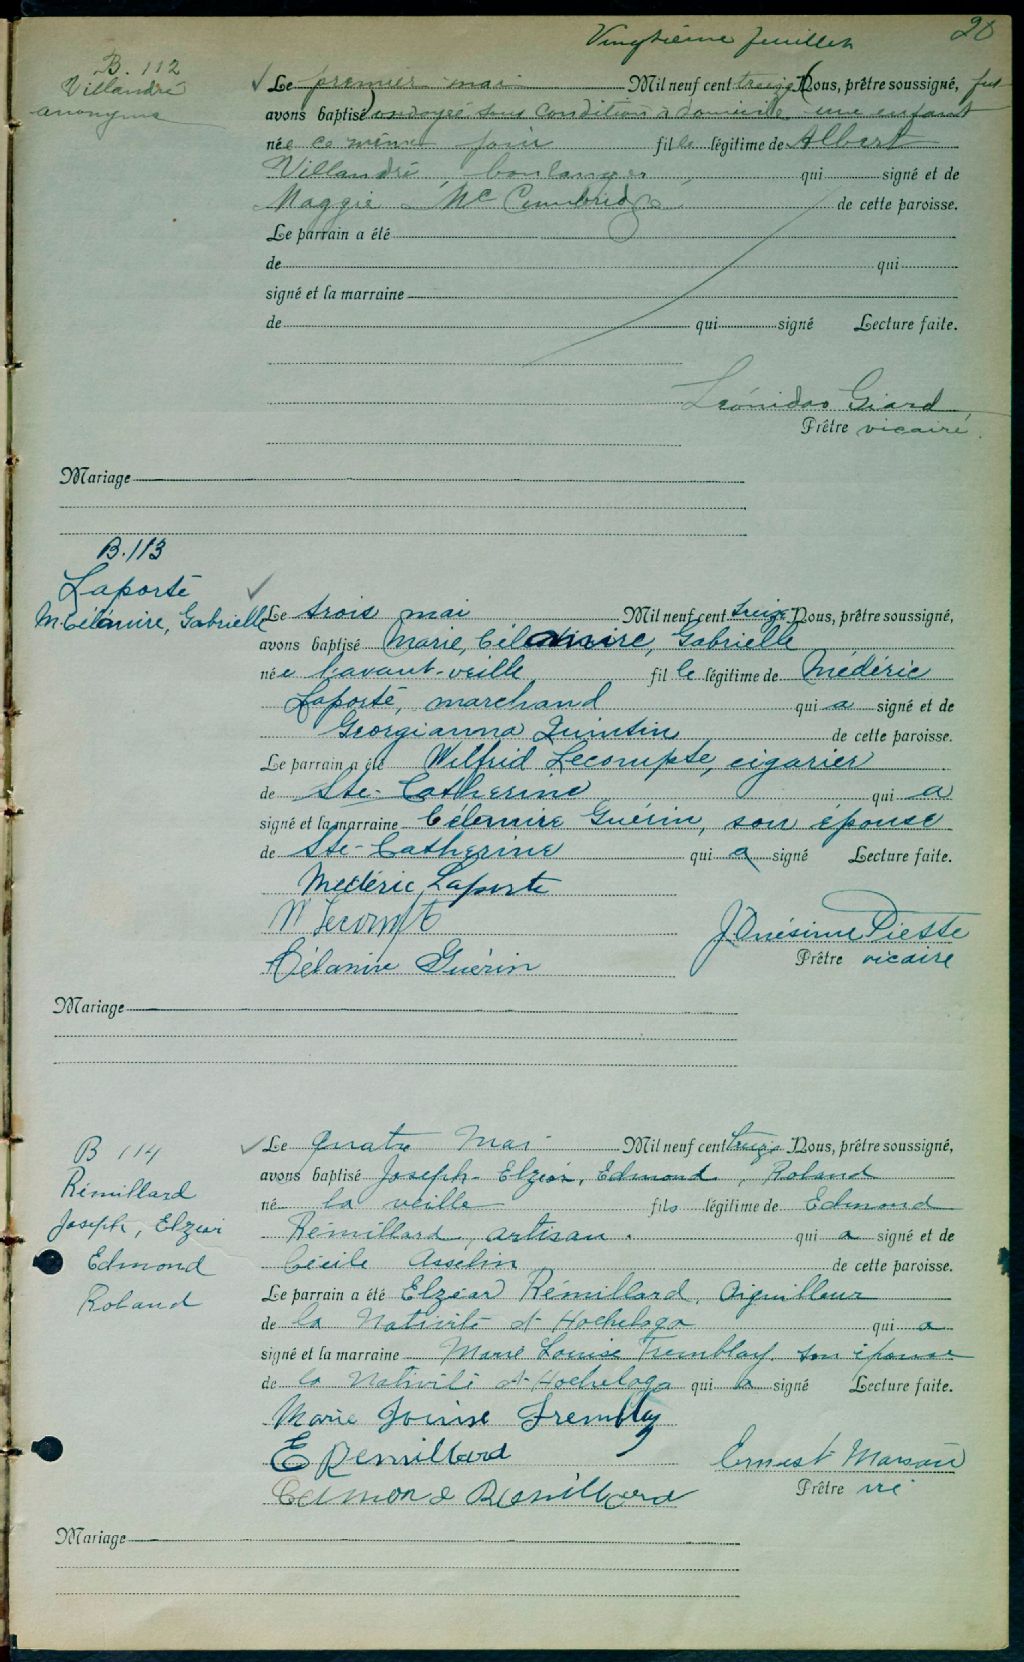 Vingtième feuillet
20
B. 112
Villandré
anonyme
Le premier mai Mil neuf cent treize Nous, prêtre soussigné, fut
avons baptisé ondoyée sous condition à domicile une enfant
née ce même jour fille légitime de Albert
Villandré, boulanger, qui signé et de
Maggie Mc de cette paroisse.
Le parrain a été
de qui
signé et la marraine
de qui signé Lecture faite.
Léonidas Giard
Prêtre vicaire
Mariage
B. 113
Laporte
M. Célanire, Gabrielle
Le trois mai Mil neuf cent treize Nous, prêtre soussigné,
avons baptisé Marie, Célanire, Gabrielle
née l'avant-veille fille légitime de Médéric
Laporte, marchand qui a signé et de
Georgianna Quintin de cette paroisse.
Le parrain a été Wilfrid Lecompte, cigarier
de Ste-Catherine qui a
signé et la marraine Célanire Guérin, son épouse
de Ste-Catherine qui a signé Lecture faite.
Médéric Laporte
W Lecompte
Célanire Guérin
J. Onésime Piette
Prêtre vicaire
Mariage
B 114
Rémillard
Joseph, Elzéar
Edmond
Roland
Le quatre Mai Mil neuf cent treize Nous, prêtre soussigné,
avons baptisé Joseph-Elzéar, Edmond, Roland
né la veille fils légitime de Edmond
Rémillard, artisan. qui a signé et de
Cécile Asselin de cette paroisse.
Le parrain a été Elzéar Rémillard, Aiguilleur
de la Nativité d'Hochelaga qui a
signé et la marraine Marie Louise Tremblay, son épouse
de la Nativité d'Hochelaga qui a signé Lecture faite.
Marie Louise Tremblay
E Remillard
Edmond Remillard
Ernest
Prêtre vic
Mariage